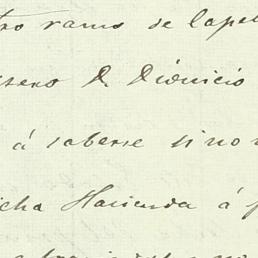 tro ramo de lape
sero D. Dionicio
á saberse si no
icha Hacienda á p